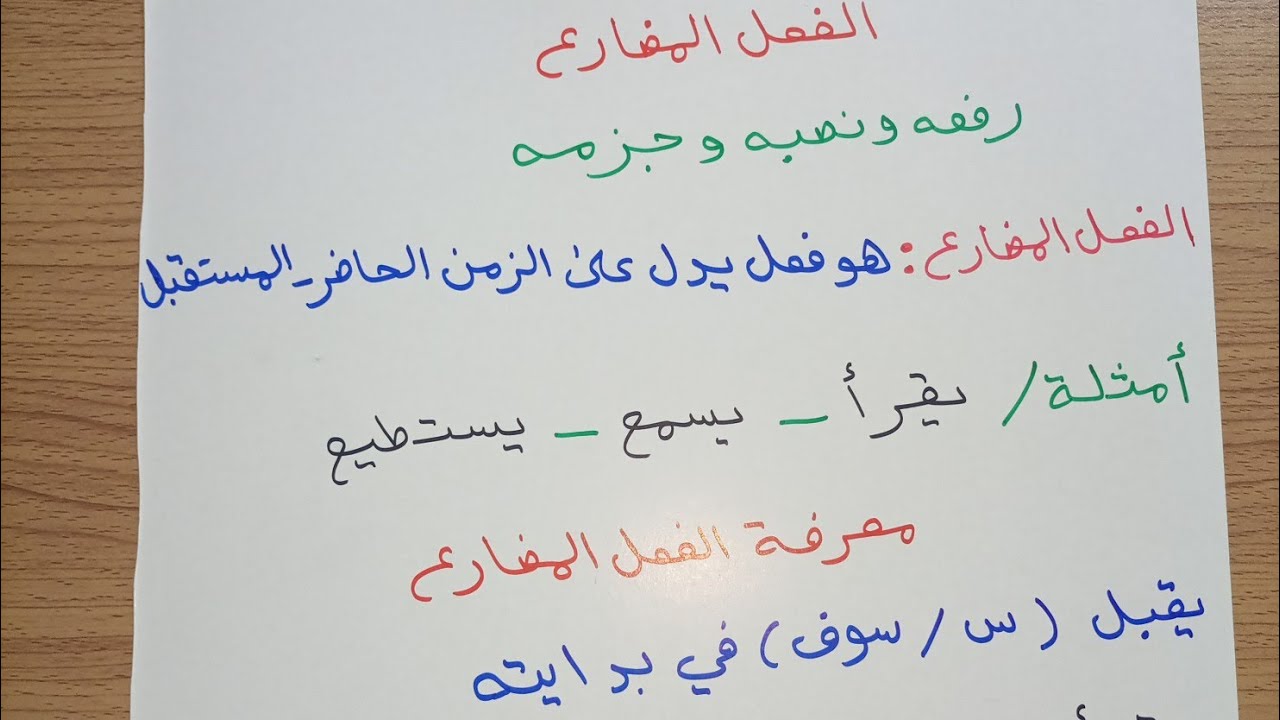 الفعل المضارع
رفعه ونصبه وجزمه
الفعل المضارع: هو فعل يدل على الزمن الحاضر - المستقبل
أمثلة / يقرأ - يسمع - يستطيع
معرفة الفعل المضارع
يقبل (س / سوف) في بدايته